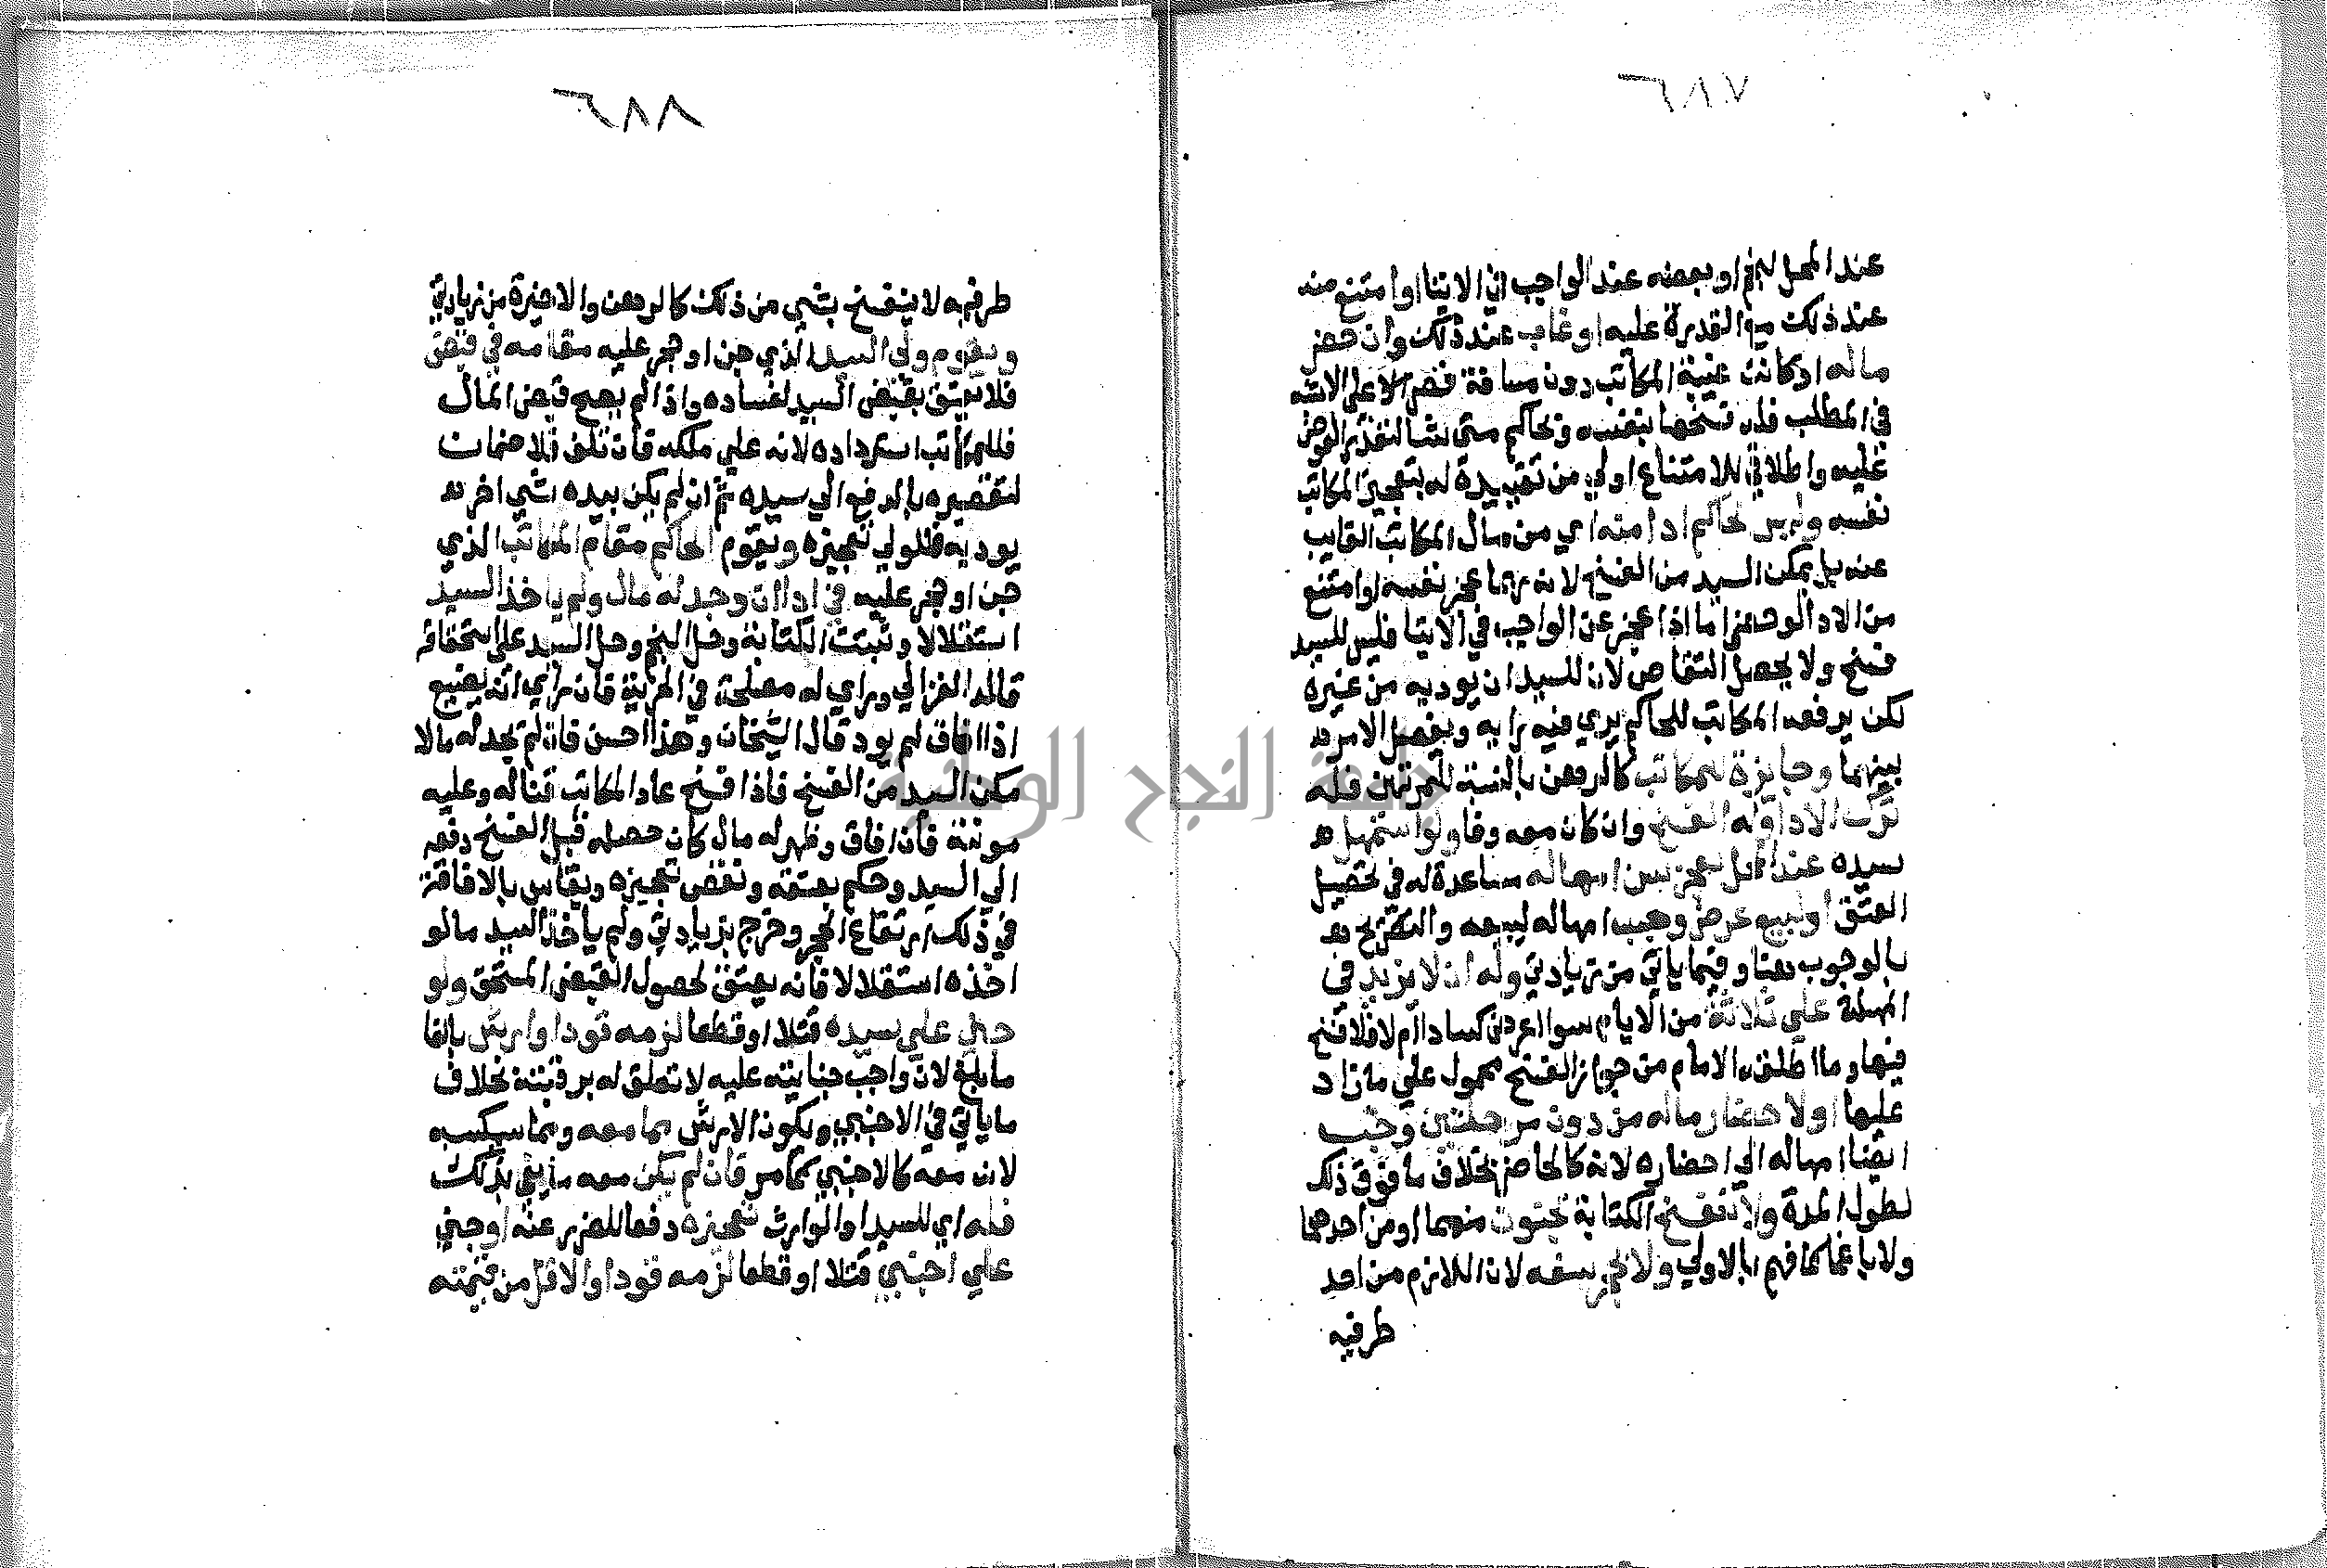 ٦٨٧
عند المحل لنجم او بعضه عند الواجب في الايتا او امتنع منه
عند ذلك مع القدرة عليه او غاب عند ذلك وان حضر
ماله او كانت غيبة المكاتب دون مسافة قصر علي الاشبه
في المطلب فله فسخها بنفسه وبحاكم متي شا لتعذر العوض
عليه واطلاقي للامتناع اولي من تقييده له بتعجيز المكاتب
نفسه وليس لحاكم ادا منه اي من مال المكاتب الغايب
عنه بل يمكن السيد من الفسخ لانه ربما عجز نفسه او امتنع
من الاد الو حضر اما اذا عجز عن الواجب في الايتا فليس للسيد
فسخ ولا يحصل التقاص لان للسيد ان يوديه من غيره
لكن يرفعه المكاتب للحاكم يري فيه رايه ويفصل الامر
بينهما وجايزة للمكاتب كالرهن بالنسبة للمرتهن فله
ترك الادا وله الفسخ وان كان معه وفا ولو استمهل
سيده عند المحل لعجز سن امهاله مساعدة له في تحصيل
العتق او لبيع عرض وجب امهاله لبيعه والتصريح
بالوجوب هنا وفيما ياتي من زيادتي وله ان لا يزيد في
المهلة علي ثلاثة من الايام سوا اعرض كساد ام لا فلا فسخ
فيها وما اطلقه الامام من جواز الفسخ محمول علي ما زاد
عليها او لاحضار ماله من دون مرحلتين وجب
ايضا امهاله الي احضاره لانه كالحاضر بخلاف ما فوق ذلك
لطول المدة ولا تنفسخ الكتابة بجنون منهما او من احدهما
ولا باغما كما فهم بالاولي ولا بحجر سفه لان اللازم من احد
طرفيه
٦٨٨
طرفيه لا ينفسخ بشي من ذلك كالرهن والاخيرة من زيادتي
ويقوم ولي السيد الذي جن او حجر عليه مقامه في قبض
فلا يعتق بقبض السيد لفساده واذا لم يصح قبض المال
فللمكاتب استرداده لانه علي ملكه فان تلف فلا ضمان
لتقصيره بالدفع الي سيده ثم ان لم يكن بيده شي اخر
يوديه فللولي تعجيزه ويقوم الحاكم مقام المكاتب الذي
جن او حجر عليه في ادا ان وجد له مال ولم ياخذ السيد
استقلالا وثبتت الكتابة وحل النجم وحل السيد علي استحقاقه
قاله الغزالي وراي له مصلحة في الحرية فان راي انه يضيع
اذا افاق لم يود قال الشيخان وهذا حسن فان لم يجد له مالا
مكن السيد من الفسخ فاذا فسخ عاد المكاتب قنا له وعليه
مونته فان افاق وظهر له مال كان حصله قبل الفسخ دفعه
الي السيد وحكم بعتقه ونقض تعجيزه ويقاس بالافاقة
في ذلك ارتفاع الحجر وخرج بزيادتي ولم ياخذ السيد ما لو
اخذه استقلالا فانه يعتق لحصول القبض المستحق ولو
جني علي سيده قتلا او قطعا لزمه قود او ارش بالغا
ما بلغ لان واجب جنايته عليه لا تعلق له برقبته بخلاف
ما ياتي في الاجنبي ويكون الارش مما معه ومما سيكسبه
لانه معه كالاجنبي كما مر فان لم يكن معه ما يفي بذلك
فله اي للسيد او الوارث تعجيزه دفعا للضرر عنه او جني
علي اجنبي قتلا او قطعا لزمه قود او الاقل من قيمته
جامعة النجاح الوطنية